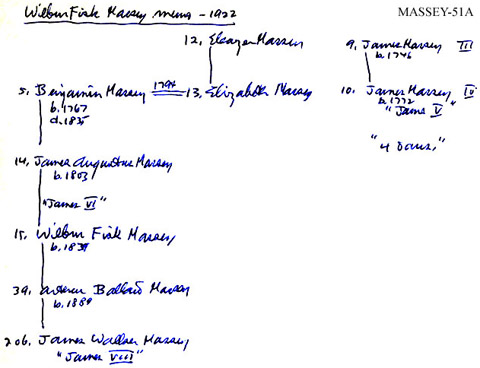 Wilbur Fisk Massey memo - 1922
MASSEY-51A
12, Eleazer Massey
9, James Massey III
b.1746
5. Benjamin Massey 1794 13, Elizabeth Massey
b.1767
d.1835
10, James Massey IV
b.1772
"James V"
"4 sons,"
14, James Augustus Massey
b.1803
"James VI"
15, Wilbur Fisk Massey
b.1839
39, Ballard Massey
b.1889
206, James Walker Massey
"James VIII"